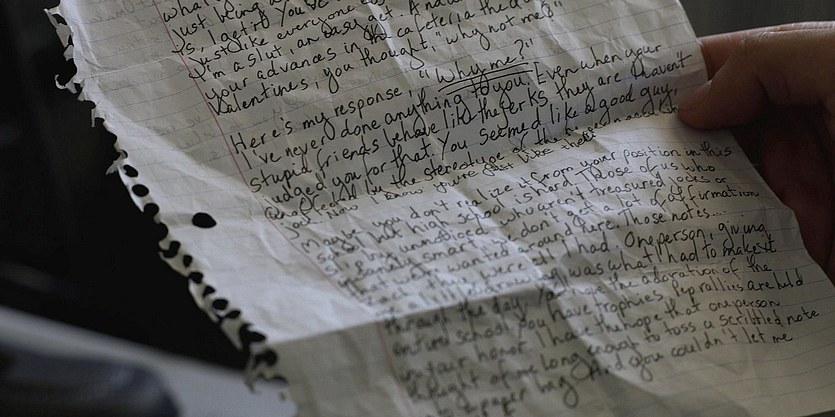 what
just being a
is, I get it. You've
just like everyone
I'm a slut, an easy get. And
your advances in the cafeteria the
Valentines, you thought, "why not me?"
Here's my response, "Why me?"
I've never done anything to you. Even when your
stupid friends behave like the jerks they are I haven't
judged you for that. You seemed like a good guy,
the stereotype of the
Now I know you're just like them
Maybe you don't realize it from your position in this
school but high school is hard. Those of us who
unnoticed, who aren't treasured jocks or
smart, don't get a lot of affirmation
that we're wanted around here. Those notes...
they were all I had. One person, giving
was what I had to make it
through the day. You have the adoration of the
entire school. You have trophies. Pep rallies are held
in your honor. I have the hope that one person
thought of me long enough to toss a scribbled note
paper bag. And you couldn't let me